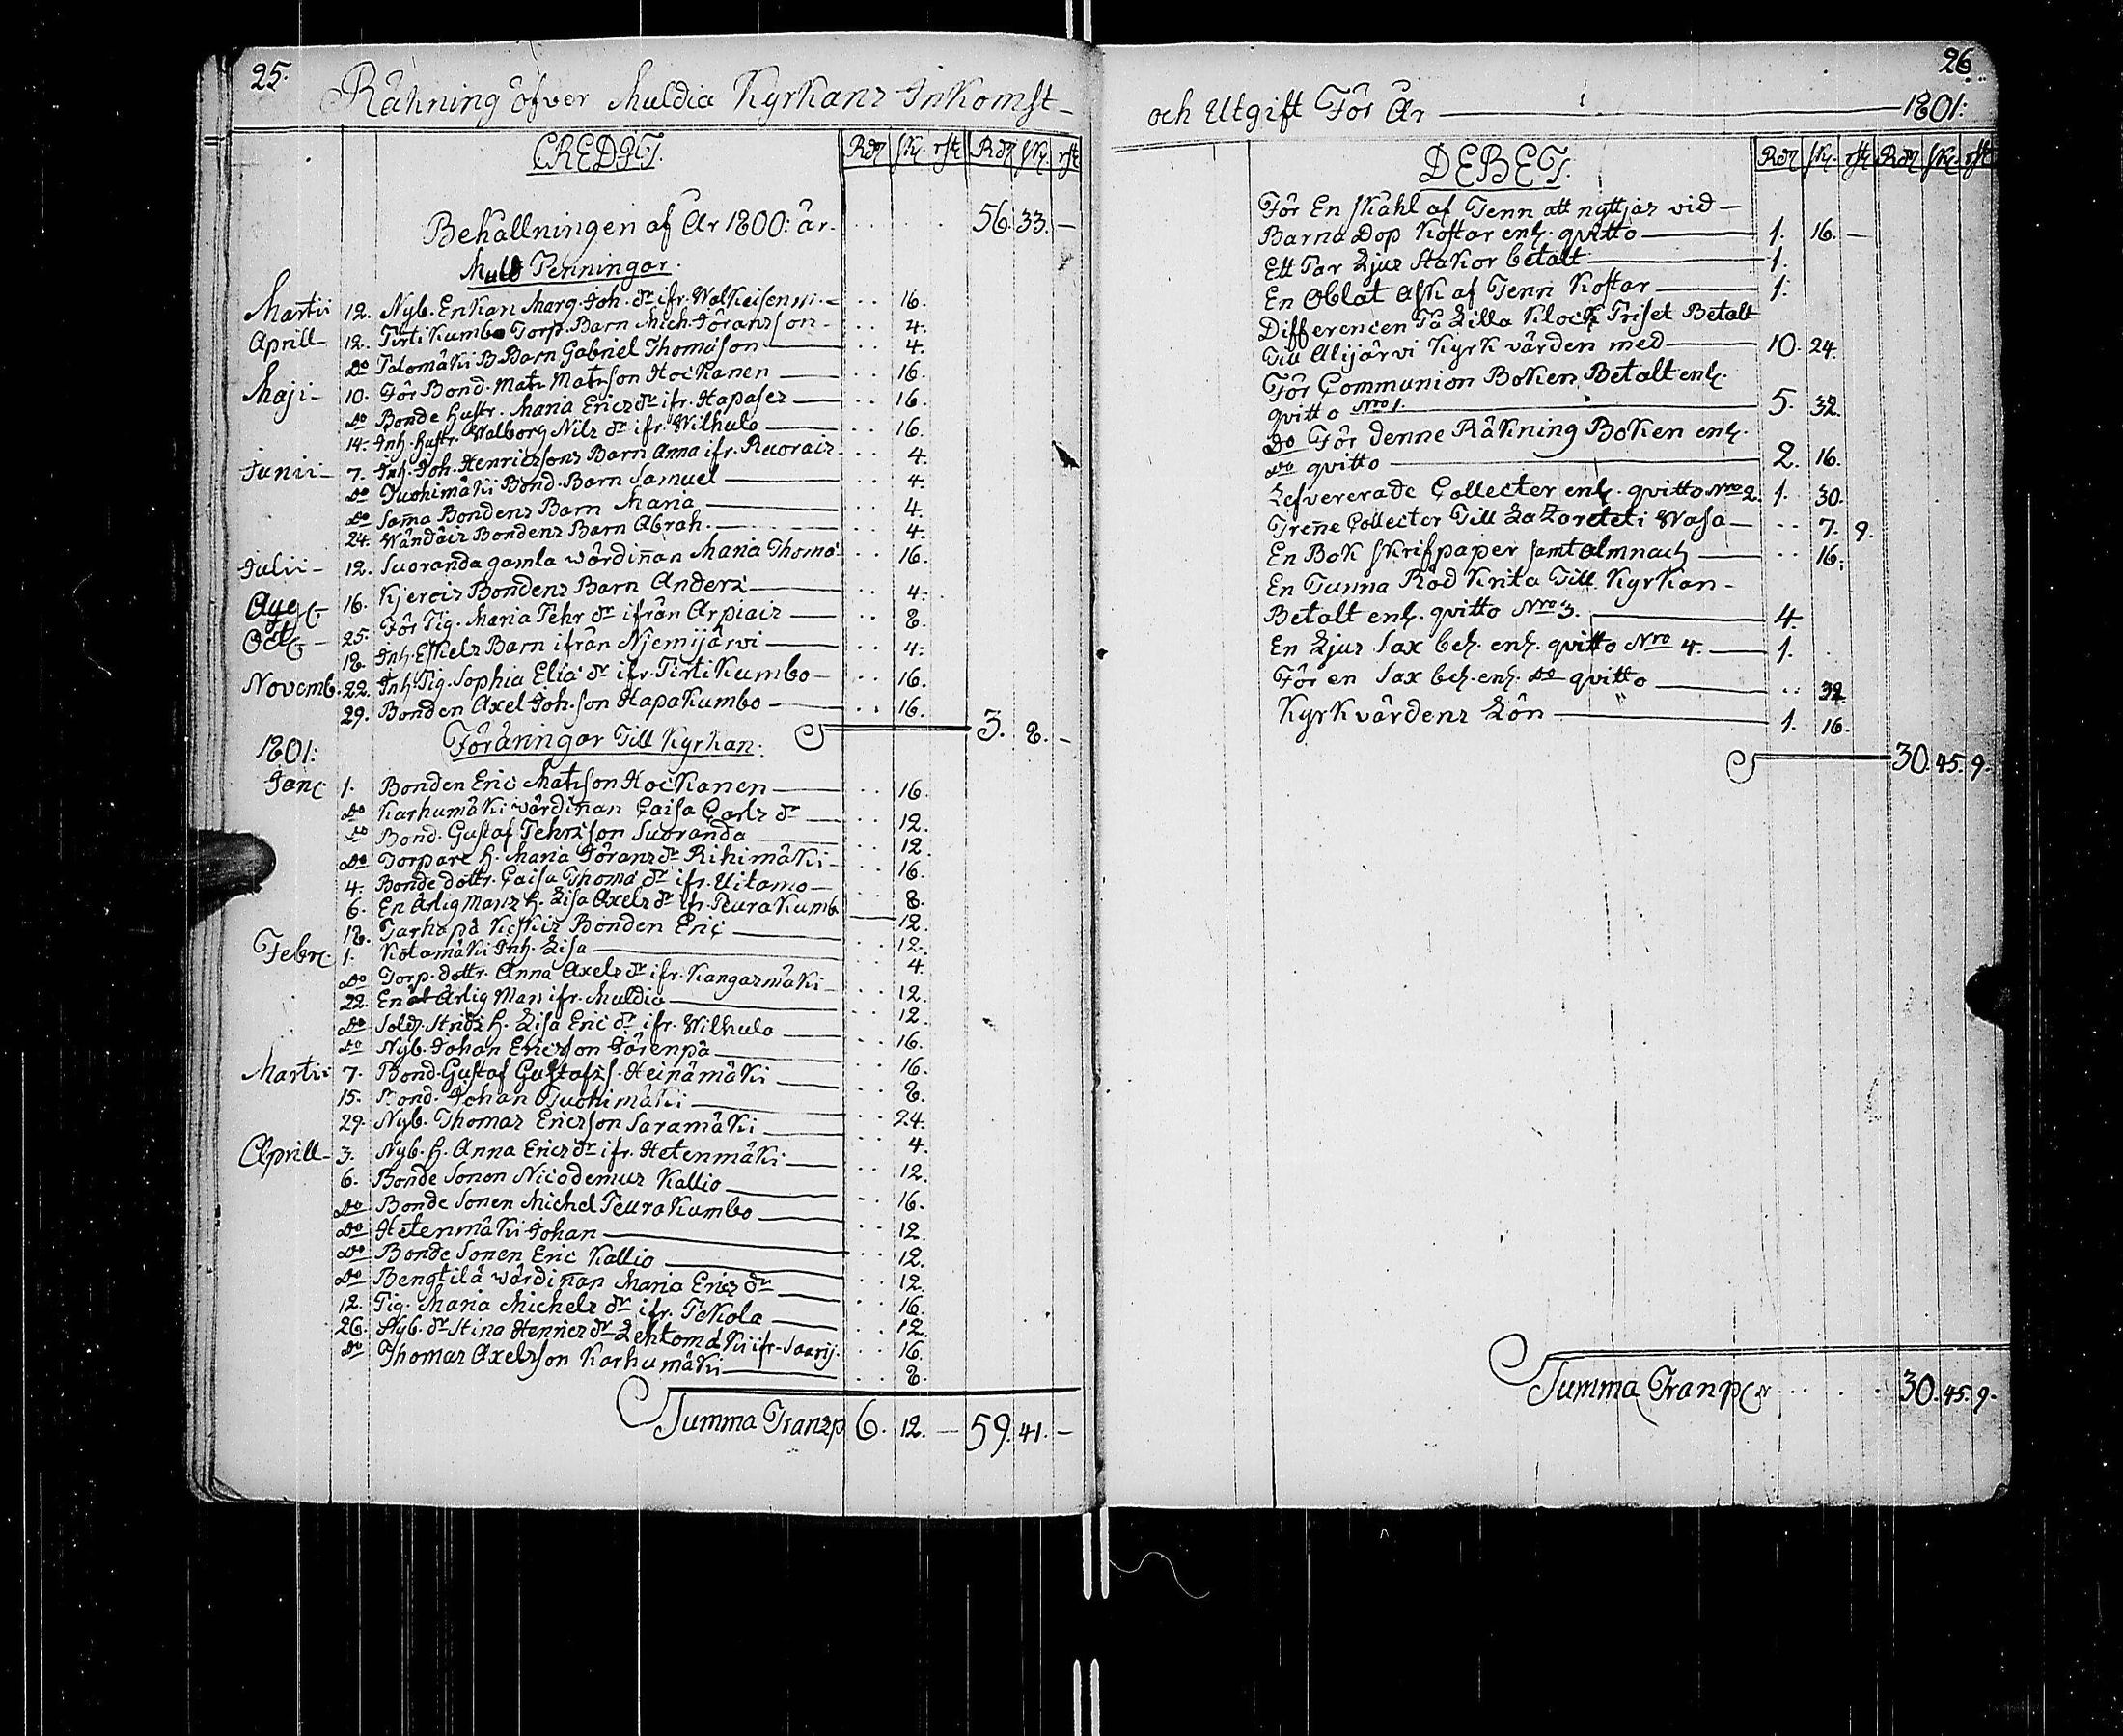 25.
Räkning öfver Muldia Kyrkans Inkomst
CREDIT. Rdr sk. rst. Rdr sk. rst.
Behållningen af År 1800: är. . . . . 56. 33. —
Mull Penningar.
Martii 12. Nyb. Enkan Marg. Joh. dr ifr. Walkeisenni. — . . 16.
Aprill 12. Tirtikumbo Torp. Barn Mich. Göransson — . . 4.
do Talomäki B. Barn Gabriel Thomæson — . . 4.
Maji 10. För Bond. Mats Matsson Hockanen — . . 16.
do Bonde hustr. Maria Erics dr ifr. Hapases — . . 16.
14. Inh. hustr. Walborg Nils dr ifr. Wilhula — . . 16.
Junii 7. Inh. Joh. Henricssons Barn Anna ifr. Ruorais . . 4.
do Tuohimäki Bond. Barn Samuel — . . 4.
do Sam̄a Bondens Barn Maria — . . 4.
24. Wändäis Bondens Barn Abrah. — . . 4.
Julii 12. Suoranda gamla wärdin̄an Maria Thomæ . . 16.
Aug. 16. Kjerois Bondens Barn Anders — . . 4.
25. För Pig. Maria Pehr dr ifrån Arpiais — . . 8.
Oct. 18. Inh. Eskels Barn ifrån Njemijärvi — . . 4.
Novemb. 22. Inh. Pig. Sophia Eliæ dr ifr. Tirtikumbo — . . 16.
29. Bonden Axel Joh.son Hapakumbo — . . 16.
S 3. 8. —
1801: Föräringar Till Kyrkan.
Jan. 1. Bonden Eric Matsson Hockanen — . . 16.
do Karhumäki wärdin̄an Caisa Carls dr — . . 12.
do Bond. Gustaf Pehrsson Suoranda — . . 12.
do Torpare h. Maria Görans dr Rihimäki — . . 16.
4. Bonde dottr. Caisa Thomæ dr ifr. Uitamo — . . 8.
6. En Ärlig Mans h. Lisa Axels dr ifr. Peurakumb. — 12.
18. Tarhapä Keskis Bonden Eric — . . 12.
Febr. 1. Kotamäki Inh. Lisa — . . 4.
do Torp. dottr. Anna Axels dr ifr. Kangasmäki — . . 12.
22. En Ärlig Man ifr. Muldia — . . 12.
do Sold. Strids h. Lisa Eric dr ifr. Wilhula — . . 16.
do Nyb. Johan Ericsson Jörenpä — . . 16.
Martii 7. Bond. Gustaf Gustafss. Heinämäki — . . 8.
15. Bond. Johan Tuohimäki — . . 24.
29. Nyb. Thomas Ericsson Saramäki — . . 4.
Aprill 3. Nyb. h. Anna Erics dr ifr. Hetenmäki — . . 12.
6. Bonde Sonen Nicodemus Kallio — . . 16.
do Bonde Sonen Michel Peurakumbo — . . 12.
do Hetenmäki Johan — . . 12.
do Bonde Sonen Eric Kallio — . . 12.
do Bengtilä wärdin̄an Maria Erics dr — . . 16.
12. Pig. Maria Michels dr ifr. Pekola — . . 12.
26. Nyb. dr Stina Henrics dr Lehtomäki ifr. Saarij. . . 16.
do Thomas Axelsson Karhumäki — . . 8.
Summa Transp 6. 12. — 59. 41. —
26.
och Utgift För År — 1801:
DEBET. Rdr sk. rst. Rdr sk. rst.
För En Skåhl af Tenn att nyttjas vid —
Barna Dop kostar enl. qvitto — 1. 16. —
Ett Par Ljus Stakor betalt — 1.
En Oblat Ask af Tenn kostar — 1.
Differencen På Lilla Klock Priset Betalt
Till Alijärvi Kyrkvärden med — 10. 24.
För Communion Boken Betalt enl.
qvitto Nro 1. — 5. 32.
do För denne Räkning Boken enl.
do qvitto — 2. 16.
Lefvererade Collecter enl. qvitto Nro 2. 1. 30.
Tren̄e Collecter Till Lazarettet i Wasa — . . 7. 9.
En Bok skrifpaper samt almnach — . . 16.
En Tunna Röd krita Till Kyrkan —
Betalt enl. qvitto Nro 3. — 4.
En Ljus Sax bet. enl. qvitto Nro 4. — 1.
För en Sax bet. enl. do qvitto — . . 32.
Kyrkvärdens Lön — 1. 16.
S 30. 45. 9.
Summa Transp. . . . . 30. 45. 9.